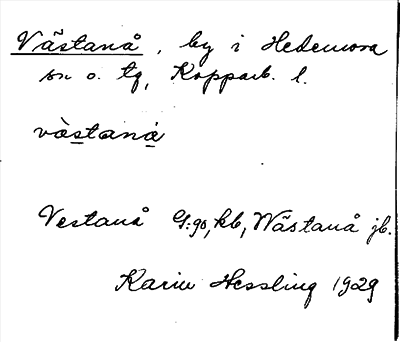 Västanå, by i Hedemora
sn o. tg, Kopparb. l.
västanå
Vestanå G:go, kb, Wästanå jb.
Karin Hessling 1929